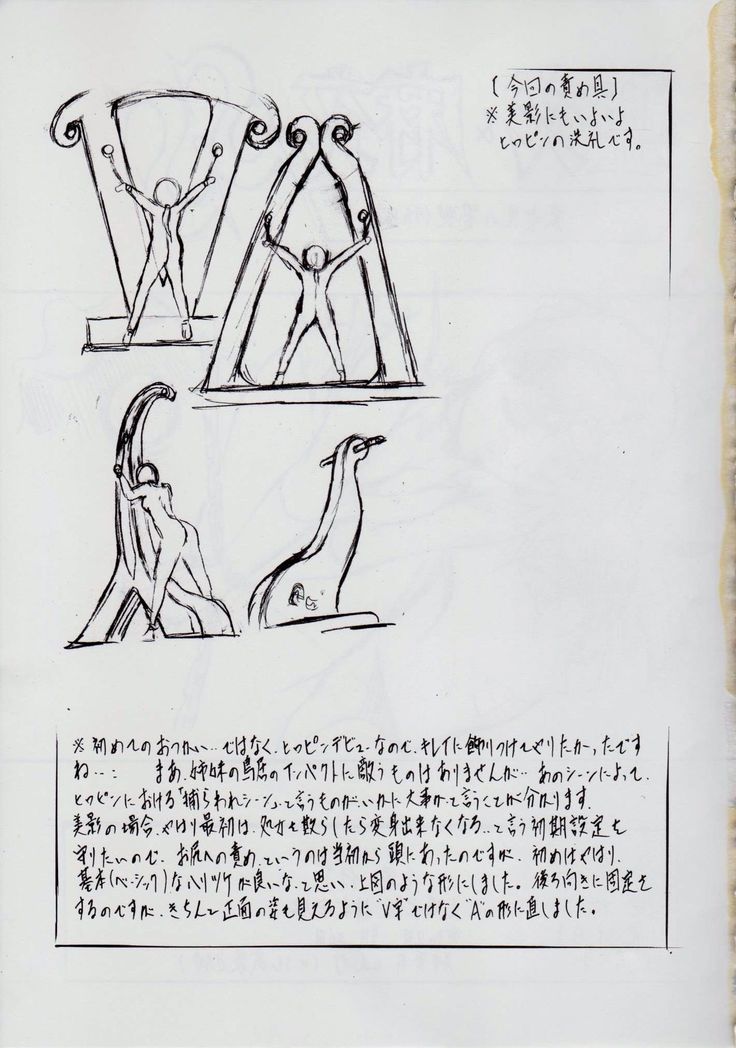 [今回の責め具]
※美影にもいよいよ
ヒロピンの洗礼です。
※初めてのおつかい…ではなく、ヒロピンデビューなので、キレイに飾りつけてやりたかったです
ね…： まあ、姉妹の鳥居のインパクトに敵うものはありませんが…あのシーンによって、
ヒロピンにおける「捕らわれシーン」って言うものが、いかに大事かって言うことが分かります。
美影の場合、やはり最初は、処女を散らしたら変身出来なくなる…と言う初期設定を
守りたいので、お尻への責め、というのは当初から頭にあったのですが、初めはやはり、
基本(ベーシック)なハリツケが良いな、と思い、上図のような形にしました。後ろ向きに固定を
するのですが、きちんと正面の姿も見えるように"V字"ではなく"A"の形に直しました。